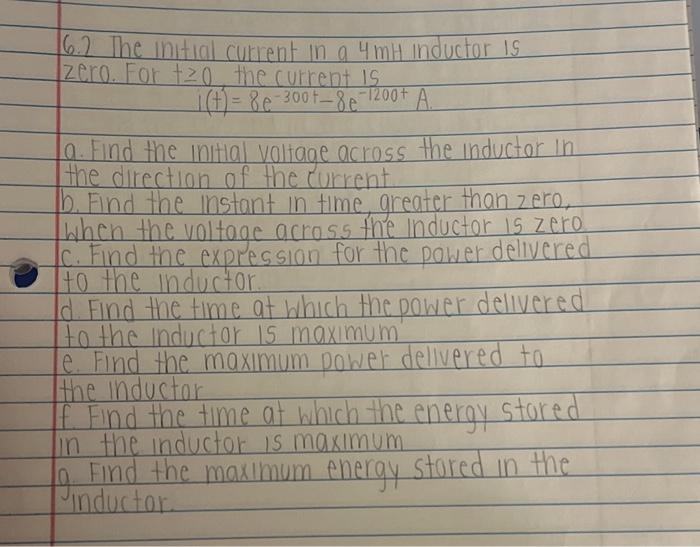 6.2 The initial current in a 4mH inductor is
zero. For t≥0, the current is
i(t) = 8e^-300t - 8e^-1200t A.
a. Find the initial voltage across the inductor in
the direction of the current.
b. Find the instant in time, greater than zero,
when the voltage across the inductor is zero
c. Find the expression for the power delivered
to the inductor.
d. Find the time at which the power delivered
to the inductor is maximum
e. Find the maximum power delivered to
the inductor
f. Find the time at which the energy stored
in the inductor is maximum
g. Find the maximum energy stored in the
inductor.